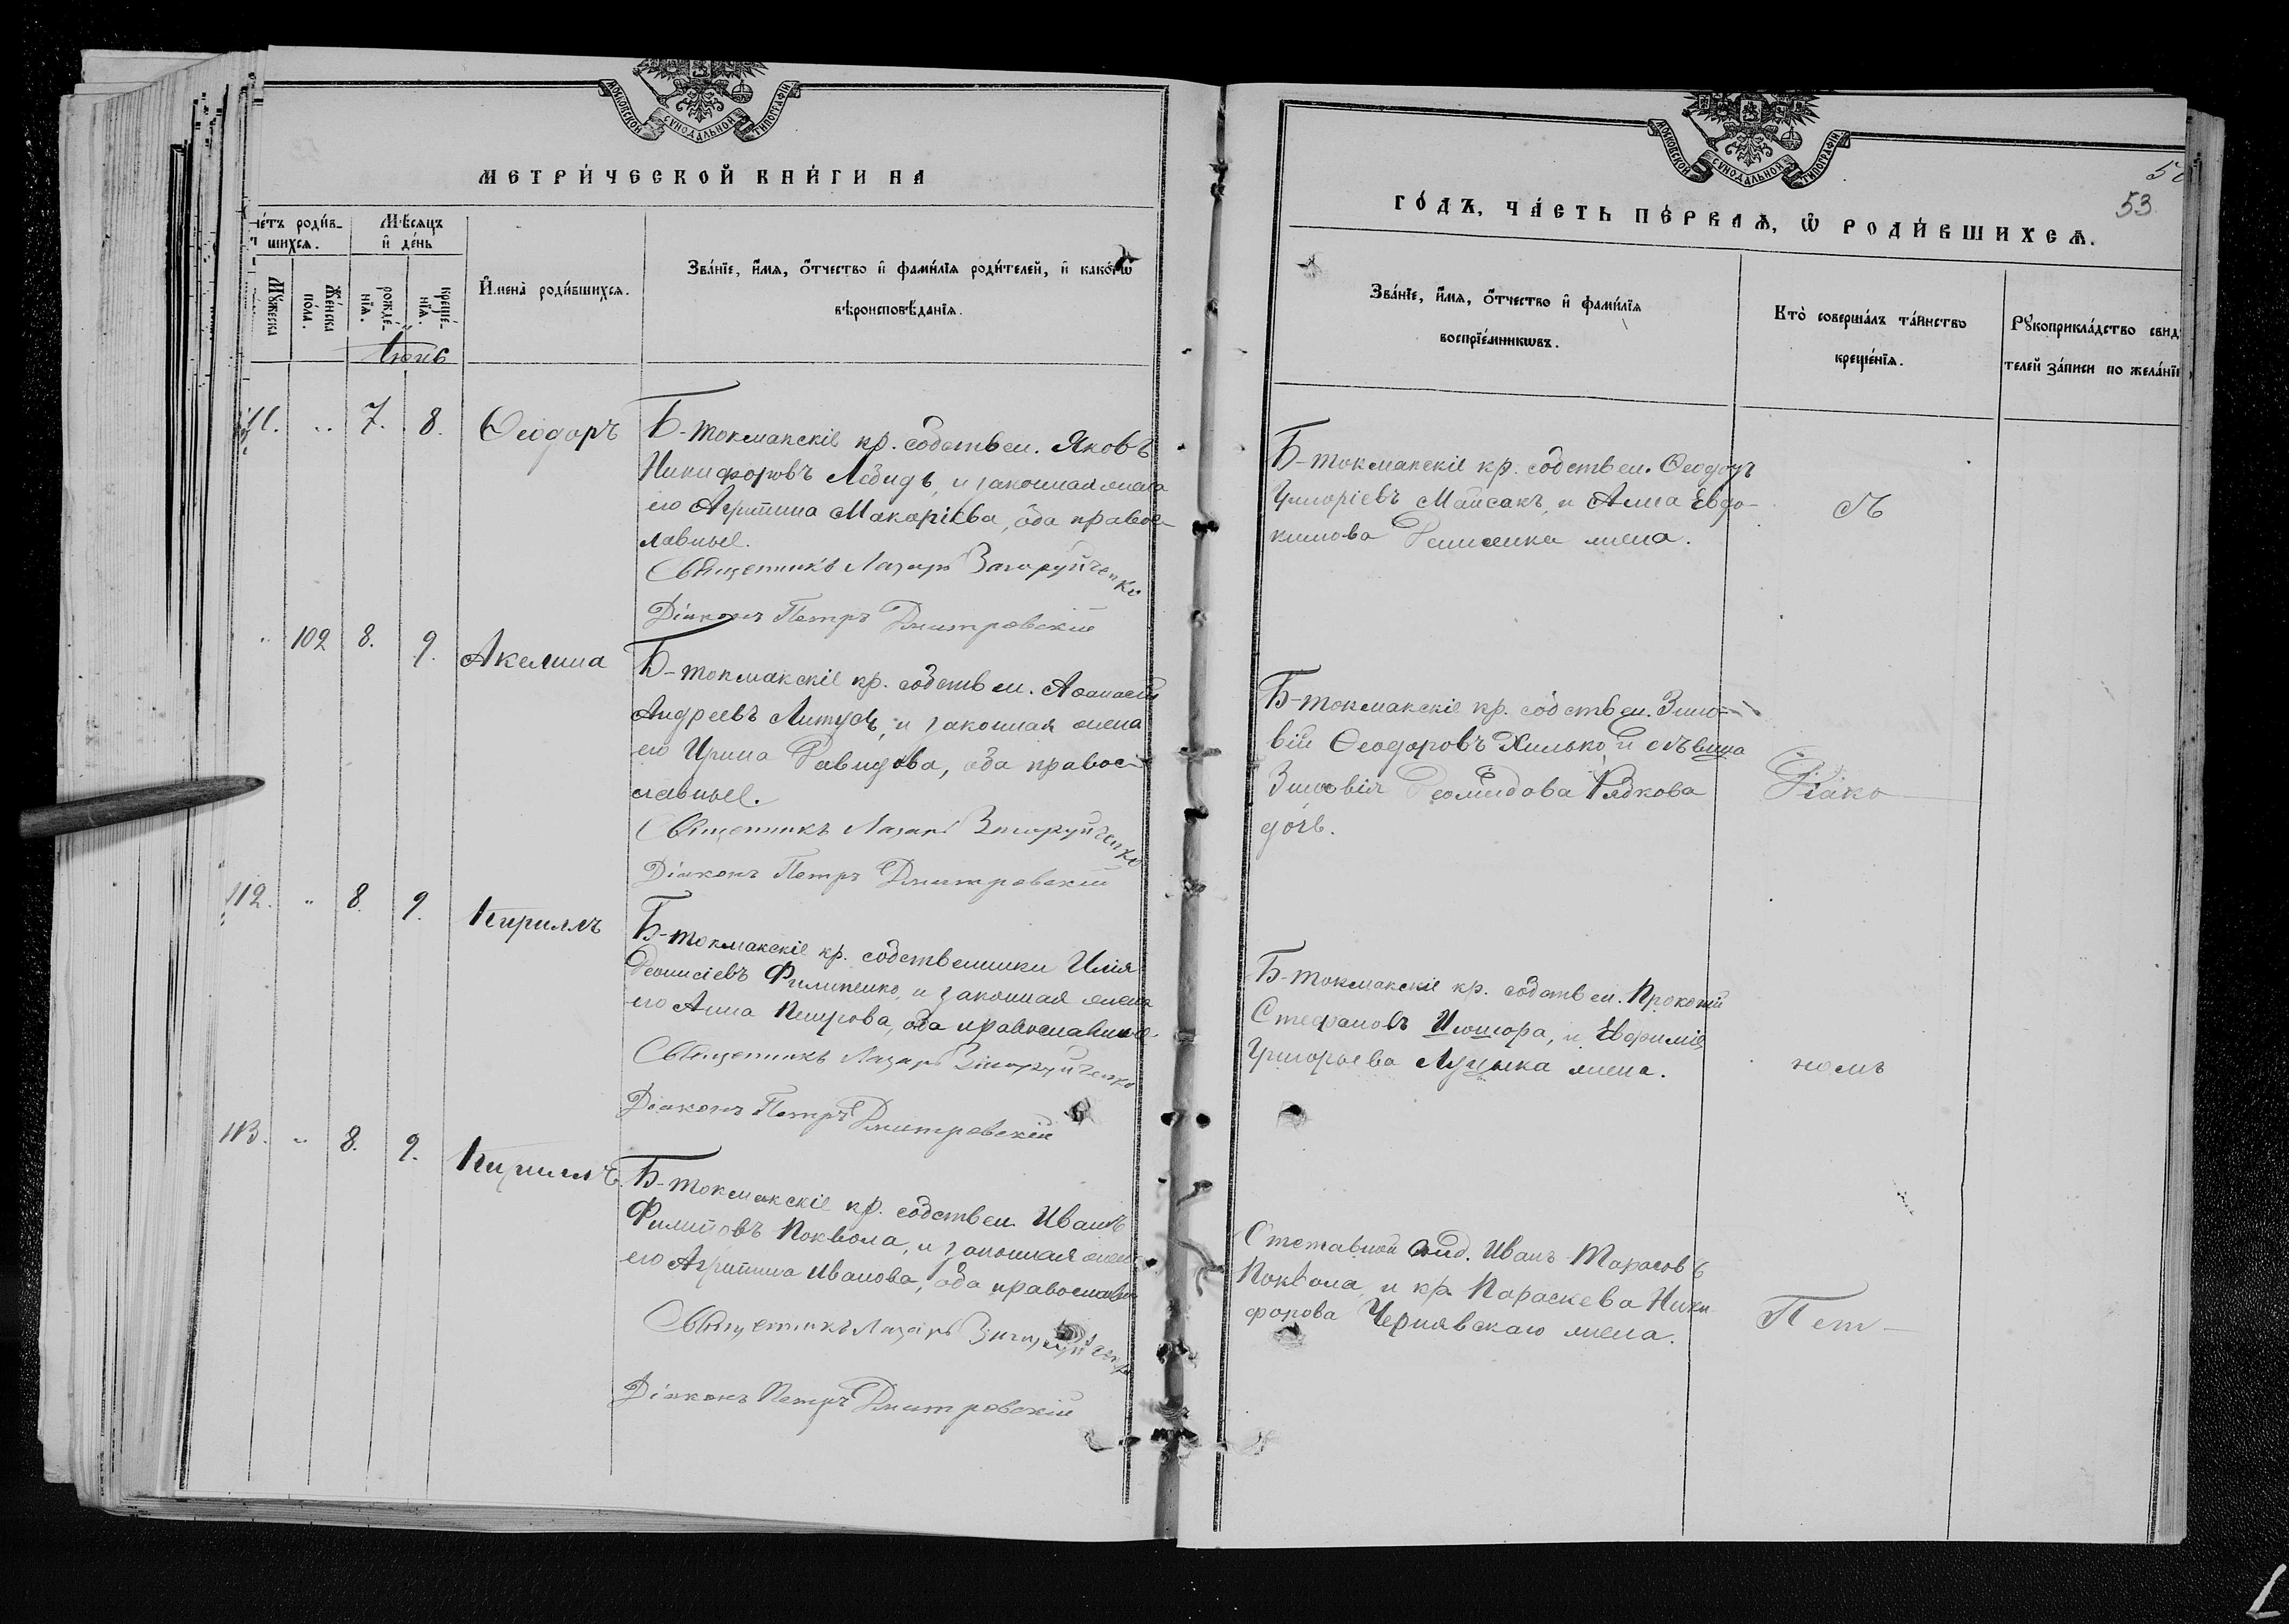 МОСКОВСКОЙ СУНОДАЛЬНОЙ ТИПОГРАФІИ
МЕТРИ́ЧЕСКОЙ КНИ́ГИ НА
че́тъ роди́в-
шихся.
Мꙋ́жеска
Же́нска
по́ла.
Мѣ́сяцъ
и҆ де́нь
рожде́-
нїѧ.
креще́-
нїѧ.
Іюнь
И҆мена̀ роди́вшихсѧ.
Зва́нїе, и҆́мѧ, ѻ҆́тчество и҆ фами́лїѧ роди́телей, и҆ како́гѡ
вѣроисповѣ́данїѧ.
111. " 7. 8. Ѳеодоръ
Б-токмакскіе кр. собствен. Яковъ
Никифоровъ Лебидь, и законная жена
его Агрипина Макаріева, оба правос-
лавные.
Священникъ Лазарь Загоруйченко
Діаконъ Петръ Дмитровскій
" 102 8. 9. Акелина
Б-токмакскіе кр. собствен. Аѳанасій
Андреевъ Литусь, и законная жена
его Ирина Давидова, оба правос-
лавные.
Священникъ Лазарь Загоруйченко
Діаконъ Петръ Дмитровскій
112. " 8. 9. Кириллъ
Б-токмакскіе кр. собственники Илія
Деонисіевъ Филипенко, и законная жена
его Анна Петрова, оба православные.
Священникъ Лазарь Загоруйченко
Діаконъ Петръ Дмитровскій
113. " 8. 9. Кириллъ
Б-токмакскіе кр. собствен. Иванъ
Филиповъ Поквола, и законная жена
его Агрипина Иванова, оба православн
Священникъ Лазарь Загоруйченко
Діаконъ Петръ Дмитровскій
МОСКОВСКОЙ СУНОДАЛЬНОЙ ТИПОГРАФІИ
53.
ГО́ДЪ, ЧА́СТЬ ПЕ́РВАѦ, Ѡ҆ РОДИ́ВШИХСѦ.
Зва́нїе, и҆́мѧ, ѻ҆́тчество и҆ фами́лїѧ
воспрїе́мникѡвъ.
Кто̀ соверша́лъ та́инство
креще́нїѧ.
Рꙋкоприкла́дство свид
телей за́писи по жела́нїю
Б-токмакскіе кр. собствен. Ѳеодоръ
Григоріевъ Майсакъ, и Анна Евдо-
кимова жена.
Б-токмакскіе кр. собствен. Зино-
вій Ѳеодоровъ Хилько, и дѣвица
Зиновія Деомидова Рябкова
дочь.
Діако
Б-токмакскіе кр. собствен. Прокопій
Стефановъ и Евфимія
Григорьева Луцыка жена.
номъ
Отставной Иванъ Тарасовъ
Поквола, и кр. Параскева Ники-
форова Чернявскаго жена.
Пет-